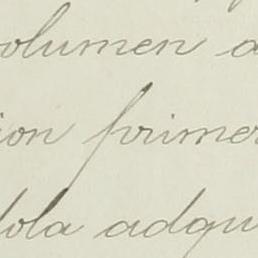 olumen a
ion primer
lola adqui